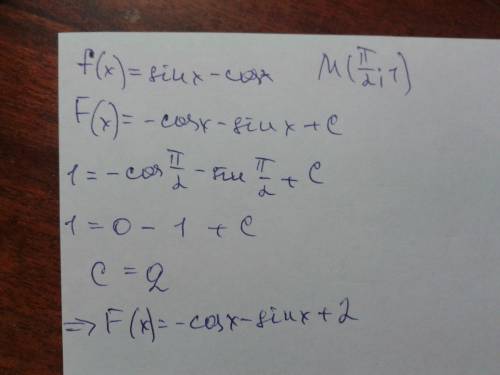 f(x)=sinx-cosx M(π/2;1)
F(x)=-cosx-sinx+C
1=-cos π/2 -sin π/2 + C
1=0-1+C
C=2
=> F(x)=-cosx-sinx+2